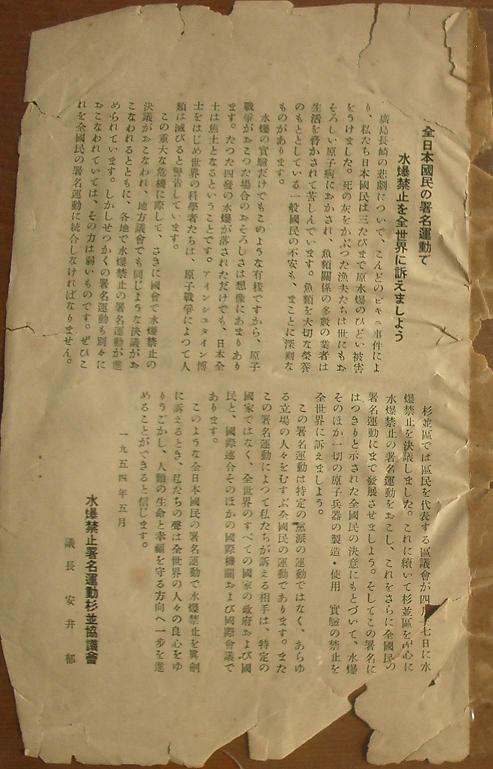 全日本國民の署名運動で
水爆禁止を全世界に訴えましよう
廣島長崎の悲劇について、こんどのビキニ事件によ
り、私たち日本國民は三たびまで原水爆のひどい被害
をうけました。死の灰をかぶつた漁夫たちは世にもお
そろしい原子病におかされ、魚類関係の多数の業者は
生活を脅かされて苦しんでいます。魚類を大切な榮養
のもととしている一般國民の不安も、まことに深刻な
ものがあります。
水爆の實驗だけでもこのような有様ですから、原子
戰爭がおこつた場合のおそろしさは想像にあまりあり
ます。たつた四発の水爆が落されただけでも、日本全
土は焦土となるということです。アインシュタイン博
士をはじめ世界の科學者たちは、原子戰爭によつて人
類は滅びると警告しています。
この重大な危機に際して、さきに國會で水爆禁止の
決議がおこなわれ、地方議會でも同じような決議がお
こなわれるとともに、各地で水爆禁止の署名運動が進
められています。しかしせつかくの署名運動も別々に
おこなわれていては、その力は弱いものです。ぜひこ
れを全國民の署名運動に統合しなければなりません。
杉並區では區民を代表する區議會が四月十七日に水
爆禁止を決議しました。これに續いて杉並區を中心に
水爆禁止の署名運動をおこし、これをさらに全國民の
署名運動にまで發展させましよう。そしてこの署名に
はつきりと示された全國民の決意にもとづいて、水爆
そのほか一切の原子兵器の製造・使用・實驗の禁止を
全世界に訴えましよう。
この署名運動は特定の黨派の運動ではなく、あらゆ
る立場の人々をむすぶ全國民の運動であります。また
この署名運動によつて私たちが訴える相手は、特定の
國家ではなく、全世界のすべての國家の政府および國
民と、國際連合そのほかの國際機關および國際會議で
あります。
このような全日本國民の署名運動で水爆禁止を眞劍
に訴えるとき、私たちの聲は全世界の人々の良心をゆ
りうごかし、人類の生命と幸福を守る方向へ一歩を進
めることができると信じます。
一九五四年五月
水爆禁止署名運動杉並協議會
議長　安井　郁